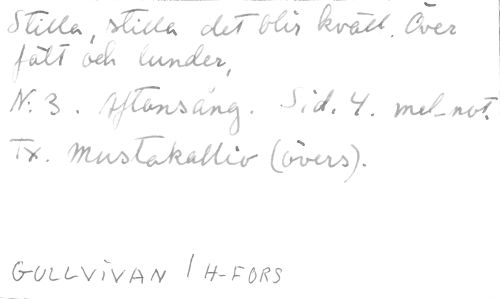 Stilla, stilla det blir kväll. Över
fält och lunder,
N: 3. Aftonsång. Sid. 4. mel-not.
Tx. Mustakallio (övers).
GULLVIVAN / H-FORS